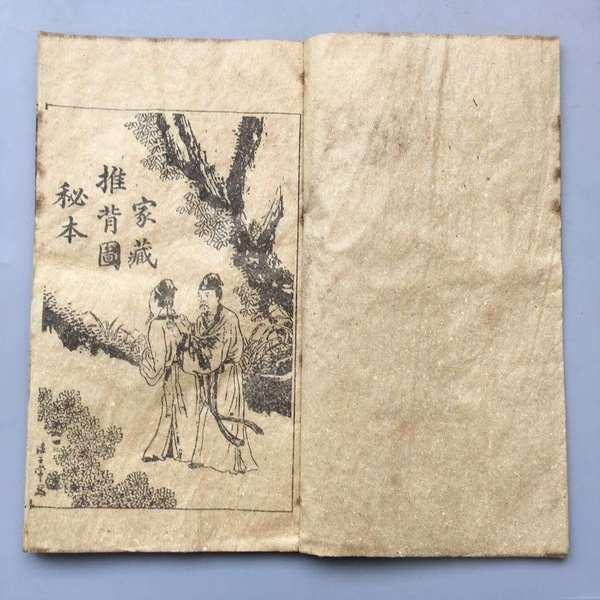 家藏
推背圖
秘本